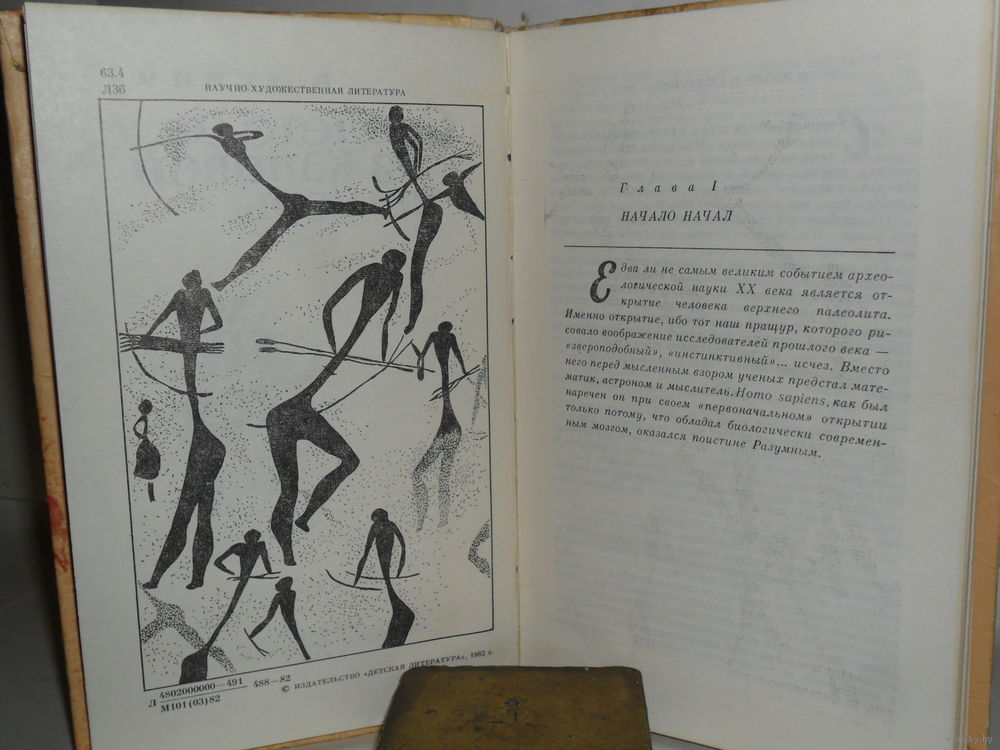 63.4
Л36
НАУЧНО-ХУДОЖЕСТВЕННАЯ ЛИТЕРАТУРА
Л 4802000000—491 488—82
М101(03)82
© ИЗДАТЕЛЬСТВО «ДЕТСКАЯ ЛИТЕРАТУРА», 1982 г.
Глава I
НАЧАЛО НАЧАЛ
Едва ли не самым великим событием архео-
логической науки XX века является от-
крытие человека верхнего палеолита.
Именно открытие, ибо тот наш пращур, которого ри-
совало воображение исследователей прошлого века —
«звероподобный», «инстинктивный»... исчез. Вместо
него перед мысленным взором ученых предстал мате-
матик, астроном и мыслитель. Homo sapiens, как был
наречен он при своем «первоначальном» открытии
только потому, что обладал биологически современ-
ным мозгом, оказался поистине Разумным.